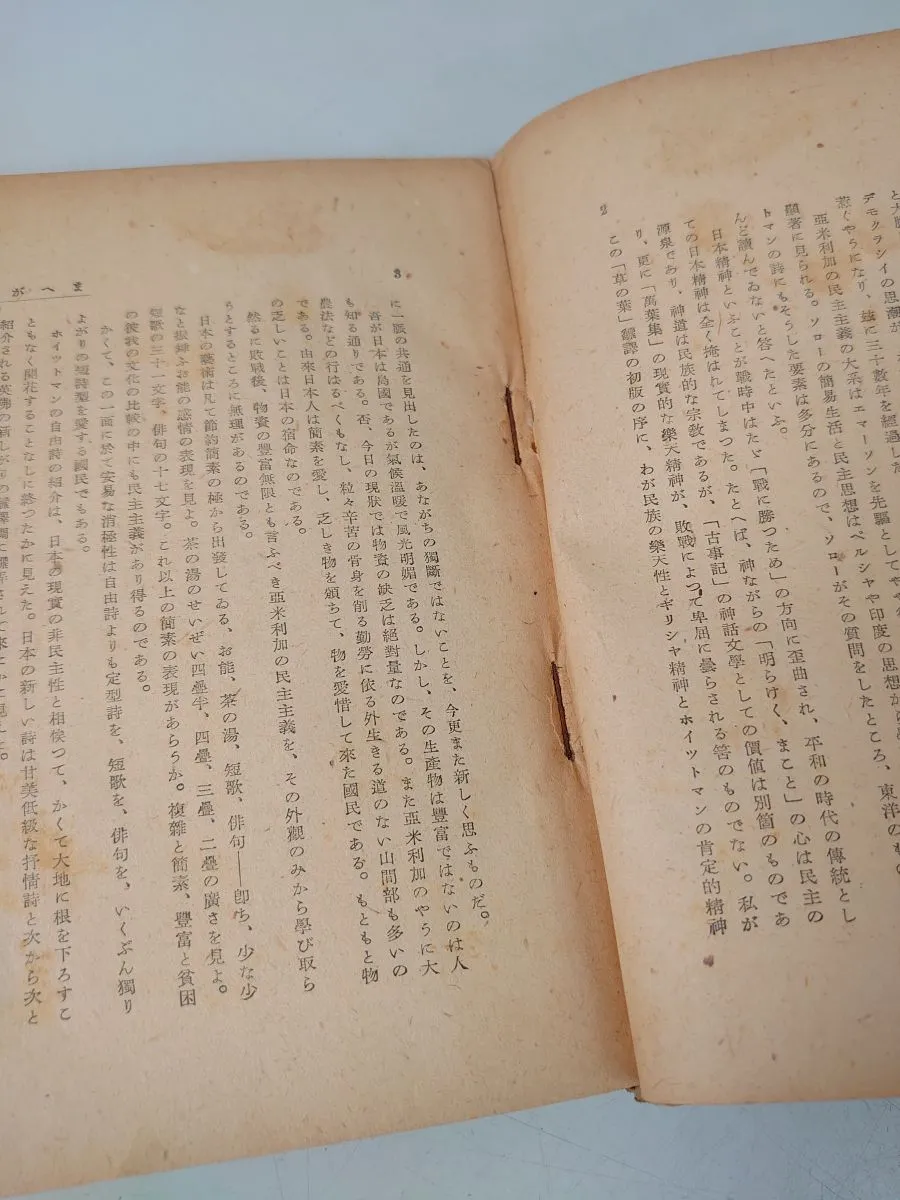 2
デモクラシイの思潮が
惹ぐやうになり、玆に三十數年を經過した
亞米利加の民主主義の大系はエマーソンを先驅としてやや
顯著に見られる。ソローの簡易生活と民主思想はペルシヤや印度の思想から
トマンの詩にもそうした要素は多分にあるので、ソローがその質問をしたところ、東洋のも
んど讀んでゐないと答へたといふ。
日本精神といふことが戰時中はたゞ「戰に勝つため」の方向に歪曲され、平和の時代の傳統とし
ての日本精神は全く掩はれてしまつた。たとへば、神ながらの「明らけく、まこと」の心は民主の
源泉であり、神道は民族的な宗敎であるが、「古事記」の神話文學としての價値は別箇のものであ
り、更に「萬葉集」の現實的な樂天精神が、敗戰によつて卑屈に曇らされる筈のものでない。私が
この「草の葉」飜譯の初版の序に、わが民族の樂天性とギリシヤ精神とホイツトマンの肯定的精神
3
まへが
に一脈の共通を見出したのは、あながちの獨斷ではないことを、今更また新しく思ふものだ。
吾が日本は島國であるが氣候溫暖で風光明媚である。しかし、その生產物は豐富ではないのは人
も知る通りである。否、今日の現狀では物資の缺乏は絕對量なのである。また亞米利加のやうに大
農法などの行はるべくもなし、粒々辛苦の骨身を削る勤勞に依る外生きる道のない山間部も多いの
である。由來日本人は簡素を愛し、乏しき物を頒ちて、物を愛惜して來た國民である。もともと物
の乏しいことは日本の宿命なのである。
然るに敗戰後、物資の豐富無限とも言ふべき亞米利加の民主主義を、その外觀のみから學び取ら
うとするところに無理があるのである。
日本の藝術は凡て節約簡素の極から出發してゐる、お能、茶の湯、短歌、俳句――卽ち、少な少
なと振舞ふお能の感情の表現を見よ。茶の湯のせいぜい四疊半、四疊、三疊、二疊の廣さを見よ。
短歌の三十一文字、俳句の十七文字。これ以上の簡素の表現があらうか。複雜と簡素、豐富と貧困
の彼我の文化の比較の中にも民主主義があり得るのである。
かくて、この一面に於て安易な消極性は自由詩よりも定型詩を、短歌を、俳句を、いくぶん獨り
よがりの短詩型を愛する國民でもある。
ホイツトマンの自由詩の紹介は、日本の現實の非民主性と相俟つて、かくて大地に根を下ろすこ
ともなく開花することなしに終つたかに見えた。日本の新しい詩は甘美低級な抒情詩と次から次と
紹介される英佛の新し